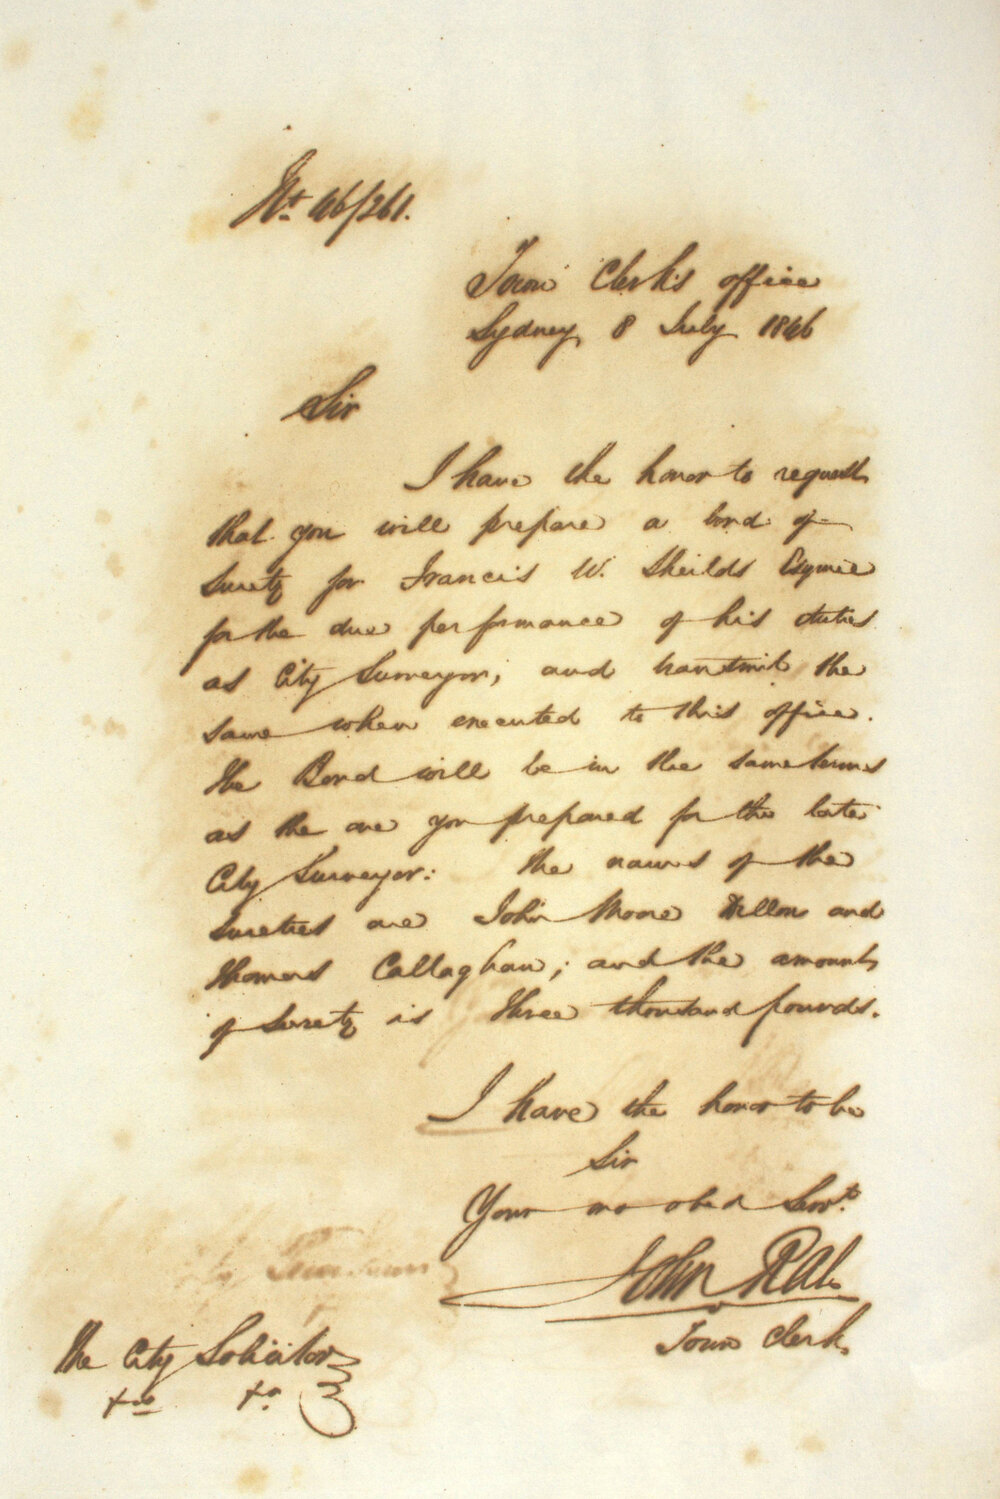 Nt. 46/261.
Town Clerk's office
Sydney, 8 July 1846
Sir
I have the honor to request
that you will prepare a bond of
Surety for Francis W. Sheilds Esquire
for the due performance of his duties
as City Surveyor, and transmit the
same when executed to this office.
The Bond will be in the same terms
as the one you prepared for the late
City Surveyor: the names of the
Sureties are John Moore Dillon and
Thomas Callaghan; and the amount
of Surety is three thousand pounds.
I have the honor to be
Sir
Your mo obed Servt.
John Rae
Town Clerk,
The City Solicitor